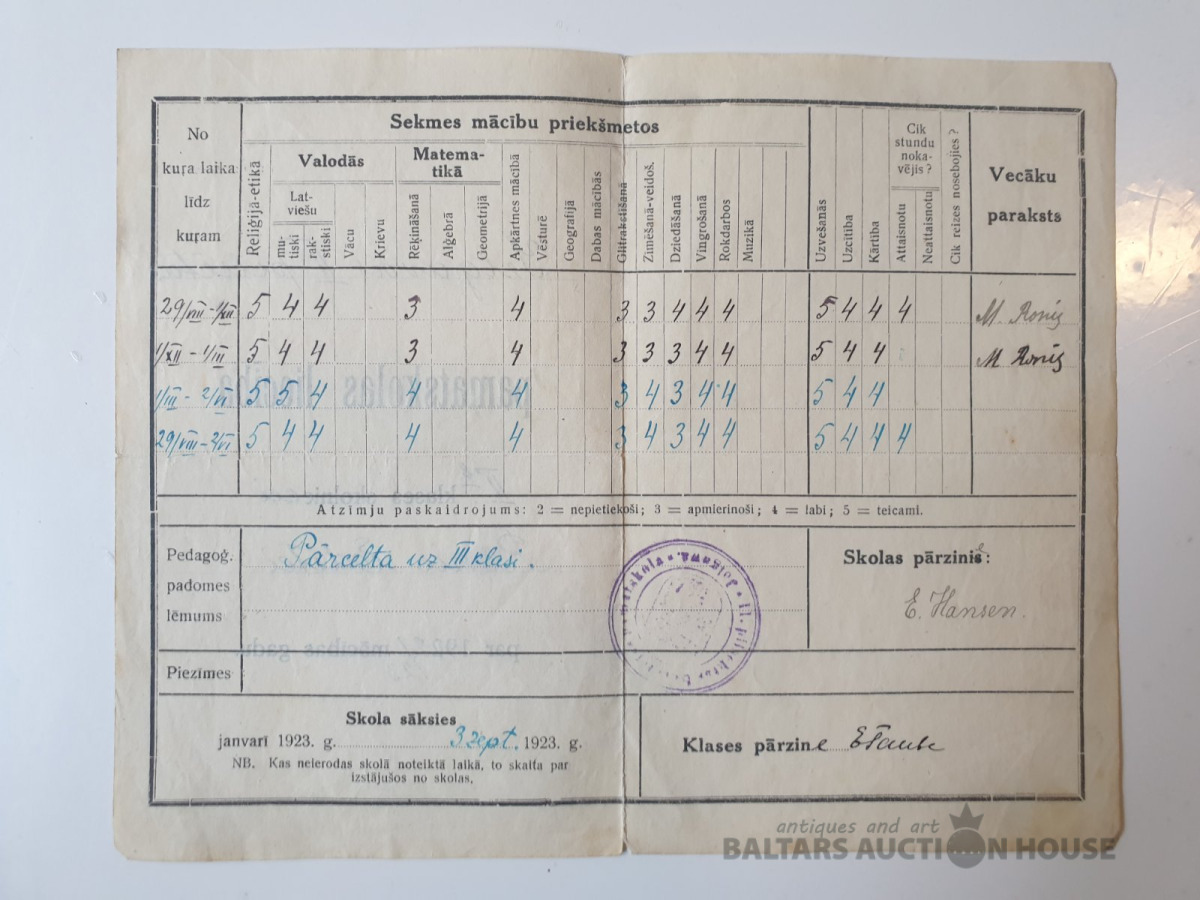 Sekmes mācību priekšmetos
No kuŗa laika līdz kuŗam
Reliģijā-etikā
Valodās
Latviešu
mutiski
rakstiski
Vācu
Krievu
Matematikā
Rēķināšanā
Alģebrā
Geometrijā
Apkārtnes mācībā
Vēsturē
Geografijā
Dabas mācībās
Glītrakstīšanā
Zīmēšanā-veidoš.
Dziedāšanā
Vingrošanā
Rokdarbos
Muzikā
Uzvešanās
Uzcītība
Kārtība
Cik stundu nokavējis?
Attaisnotu
Neattaisnotu
Cik reizes nosebojies?
Vecāku paraksts
29/VIII - 1/XII 5 4 4 3 4 3 3 4 4 4 5 4 4 4 M. Ronis
1/XII - 1/III 5 4 4 3 4 3 3 3 4 4 5 4 4 M Ronis
1/III - 2/VI 5 5 4 4 4 3 4 3 4 4 5 4 4
29/VIII - 2/VI 5 4 4 4 4 3 4 3 4 4 5 4 4 4
Atzīmju paskaidrojums: 2 = nepietiekoši; 3 = apmierinoši; 4 = labi; 5 = teicami.
Pedagoģ. padomes lēmums
Pārcelta uz III klasi.
Skolas pārzinis:
E. Hansen.
Piezīmes
Skola sāksies
janvarī 1923. g. 3 sept. 1923. g.
NB. Kas neierodas skolā noteiktā laikā, to skaita par
izstājušos no skolas.
Klases pārzine ETaube
antiques and art
BALTARS AUCTION HOUSE